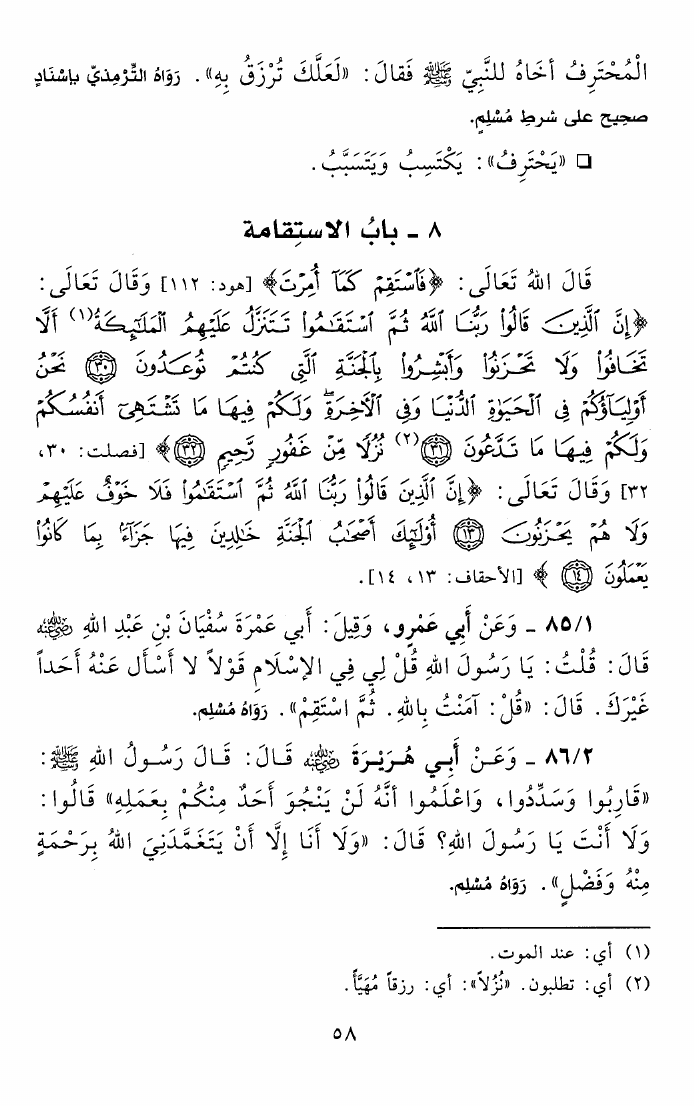 الْمُحْتَرِفُ أخَاهُ للنَّبِيِّ ﷺ فَقالَ: «لَعَلَّكَ تُرْزَقُ بِهِ». رَوَاهُ التِّرْمِذيّ بإسْنَادٍ
صحيح على شرطِ مُسْلِمٍ.
❑ «يَحْتَرِفُ»: يَكْتَسِبُ وَيَتَسَبَّبُ.
٨ - بابُ الاستِقامة
قَالَ اللهُ تَعَالَى: ﴿فَاسْتَقِمْ كَمَآ أُمِرْتَ﴾ [هود: ١١٢] وَقَالَ تَعَالَى:
﴿إِنَّ ٱلَّذِينَ قَالُوا۟ رَبُّنَا ٱللَّهُ ثُمَّ ٱسْتَقَـٰمُوا۟ تَتَنَزَّلُ عَلَيْهِمُ ٱلْمَلَـٰٓئِكَةُ(١) أَلَّا
تَخَافُوا۟ وَلَا تَحْزَنُوا۟ وَأَبْشِرُوا۟ بِٱلْجَنَّةِ ٱلَّتِى كُنتُمْ تُوعَدُونَ ۝٣٠ نَحْنُ
أَوْلِيَآؤُكُمْ فِى ٱلْحَيَوٰةِ ٱلدُّنْيَا وَفِى ٱلْـَٔاخِرَةِ ۖ وَلَكُمْ فِيهَا مَا تَشْتَهِىٓ أَنفُسُكُمْ
وَلَكُمْ فِيهَا مَا تَدَّعُونَ ۝٣١(٢) نُزُلًا مِّنْ غَفُورٍ رَّحِيمٍ ۝٣٢﴾ [فصلت: ٣٠،
٣٢] وَقَالَ تَعَالَى: ﴿إِنَّ ٱلَّذِينَ قَالُوا۟ رَبُّنَا ٱللَّهُ ثُمَّ ٱسْتَقَـٰمُوا۟ فَلَا خَوْفٌ عَلَيْهِمْ
وَلَا هُمْ يَحْزَنُونَ ۝١٣ أُو۟لَـٰٓئِكَ أَصْحَـٰبُ ٱلْجَنَّةِ خَـٰلِدِينَ فِيهَا جَزَآءًۢ بِمَا كَانُوا۟
يَعْمَلُونَ ۝١٤﴾ [الأحقاف: ١٣، ١٤].
٨٥/١ - وَعَنْ أَبِي عَمْرٍو، وَقِيلَ: أَبي عَمْرَةَ سُفْيَانَ بْنِ عَبْدِ اللهِ رضي الله عنه
قَالَ: قُلْتُ: يَا رَسُولَ اللهِ قُلْ لِي فِي الإسْلَامِ قَوْلاً لا أَسْأَل عَنْهُ أَحَداً
غَيْرَكَ. قَالَ: «قُلْ: آمَنْتُ بِاللهِ. ثُمَّ اسْتَقِمْ». رَوَاهُ مُسْلِم.
٨٦/٢ - وَعَنْ أَبِي هُرَيْرَةَ رضي الله عنه قَالَ: قَالَ رَسُولُ اللهِ ﷺ:
«قَارِبُوا وَسَدِّدُوا، وَاعْلَمُوا أنَّهُ لَنْ يَنْجُوَ أَحَدٌ مِنْكُمْ بِعَمَلِهِ» قَالُوا:
وَلَا أَنْتَ يَا رَسُولَ اللهِ؟ قَالَ: «وَلَا أَنَا إِلَّا أَنْ يَتَغَمَّدَنِيَ اللهُ بِرَحْمَةٍ
مِنْهُ وَفَضْلٍ». رَوَاهُ مُسْلِم.
(١) أي: عند الموت.
(٢) أي: تطلبون. «نُزُلاً»: أي: رزقاً مُهَيَّأً.
٥٨